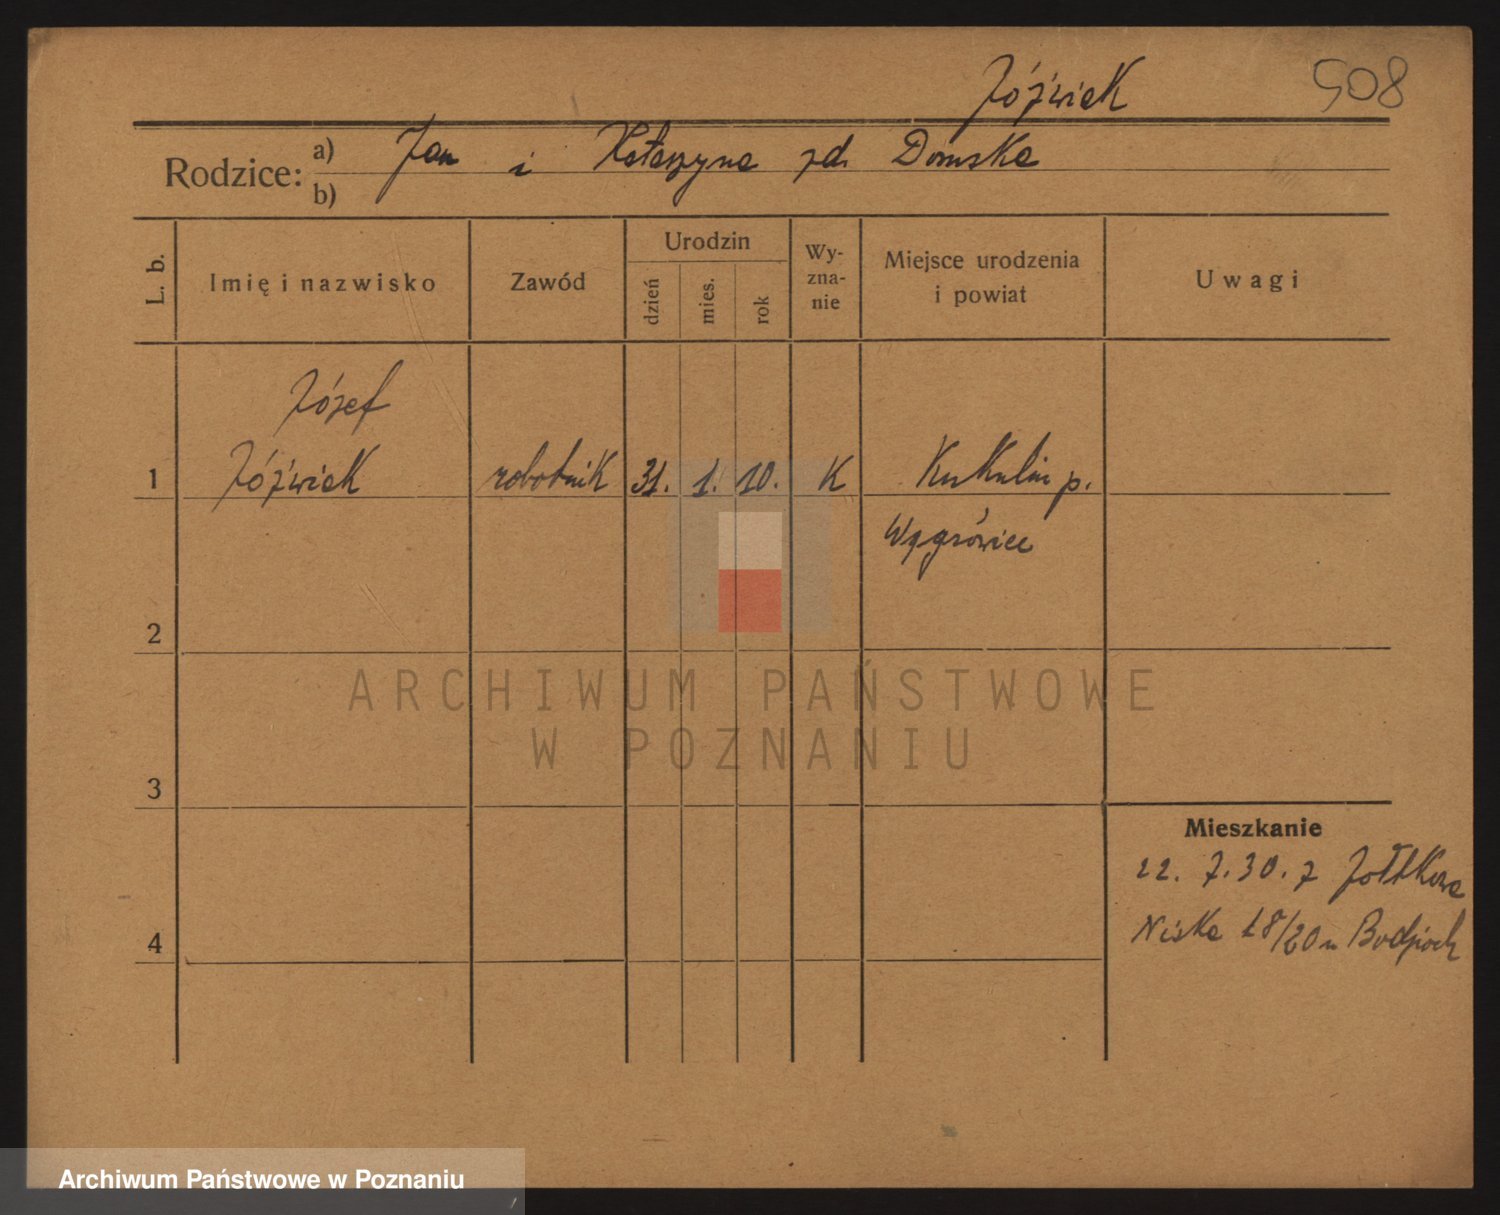 Jóźwiak 508
Rodzice: a) Jan i Katarzyna zd. Domska
b)
L. b. Imię i nazwisko Zawód Urodzin dzień mies. rok Wy-zna-nie Miejsce urodzenia i powiat Uwagi
Józef
1 Jóźwiak robotnik 31. 1. 10. K Kukulin p.
Wągrówiec
2
ARCHIWUM PAŃSTWOWE
W POZNANIU
3
Mieszkanie
22. 7. 30. z
4 Niska 18/20 u
Archiwum Państwowe w Poznaniu